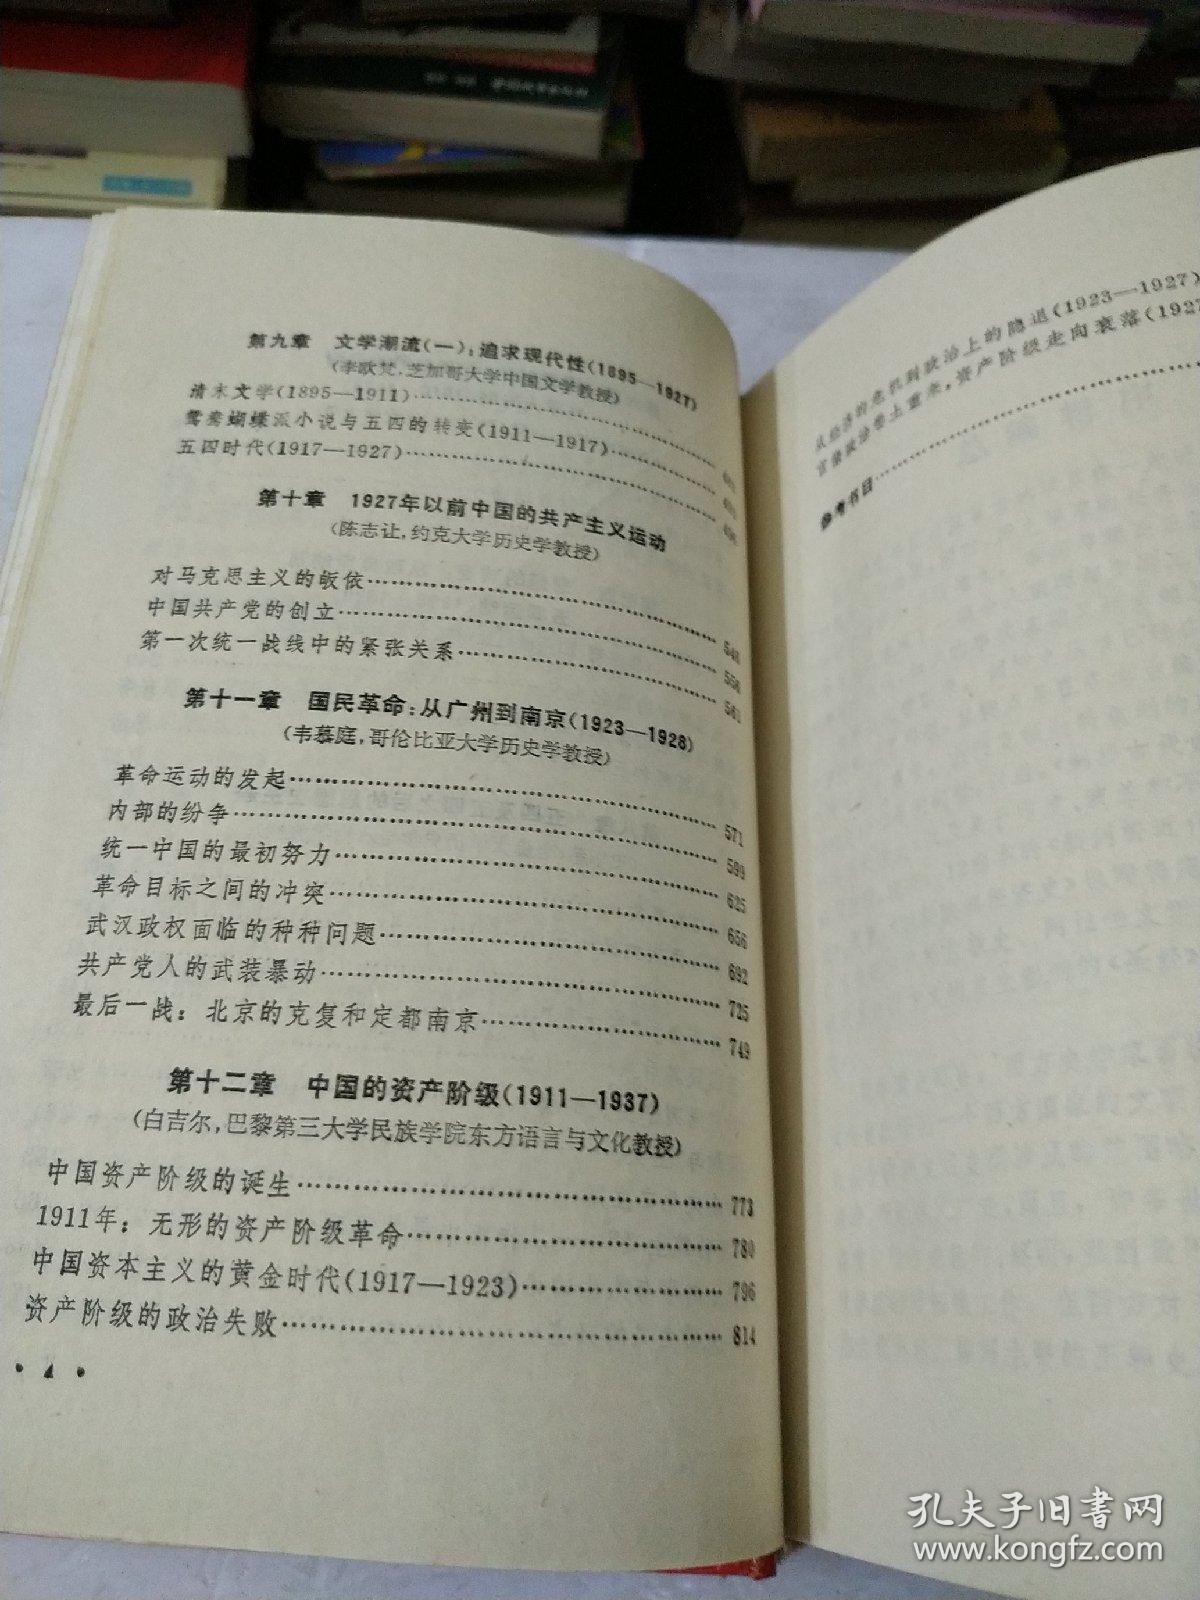 第九章 文学潮流(一):追求现代性(1895—1927)
(李欧梵,芝加哥大学中国文学教授)
清末文学(1895—1911)
鸳鸯蝴蝶派小说与五四的转变(1911—1917)
五四时代(1917—1927)
第十章 1927年以前中国的共产主义运动
(陈志让,约克大学历史学教授)
对马克思主义的皈依
中国共产党的创立
第一次统一战线中的紧张关系……561
第十一章 国民革命:从广州到南京(1923—1928)
(韦慕庭,哥伦比亚大学历史学教授)
革命运动的发起……571
内部的纷争……599
统一中国的最初努力……625
革命目标之间的冲突……656
武汉政权面临的种种问题……692
共产党人的武装暴动……725
最后一战:北京的克复和定都南京……749
第十二章 中国的资产阶级(1911—1937)
(白吉尔,巴黎第三大学民族学院东方语言与文化教授)
中国资产阶级的诞生……773
1911年:无形的资产阶级革命……780
中国资本主义的黄金时代(1917—1923)……796
资产阶级的政治失败……814
• 4 •
从经济的危机到政治上的隐退(1923—1927)
官僚政治卷土重来,资产阶级走向衰落(1927
参考书目
孔夫子旧书网
www.kongfz.com